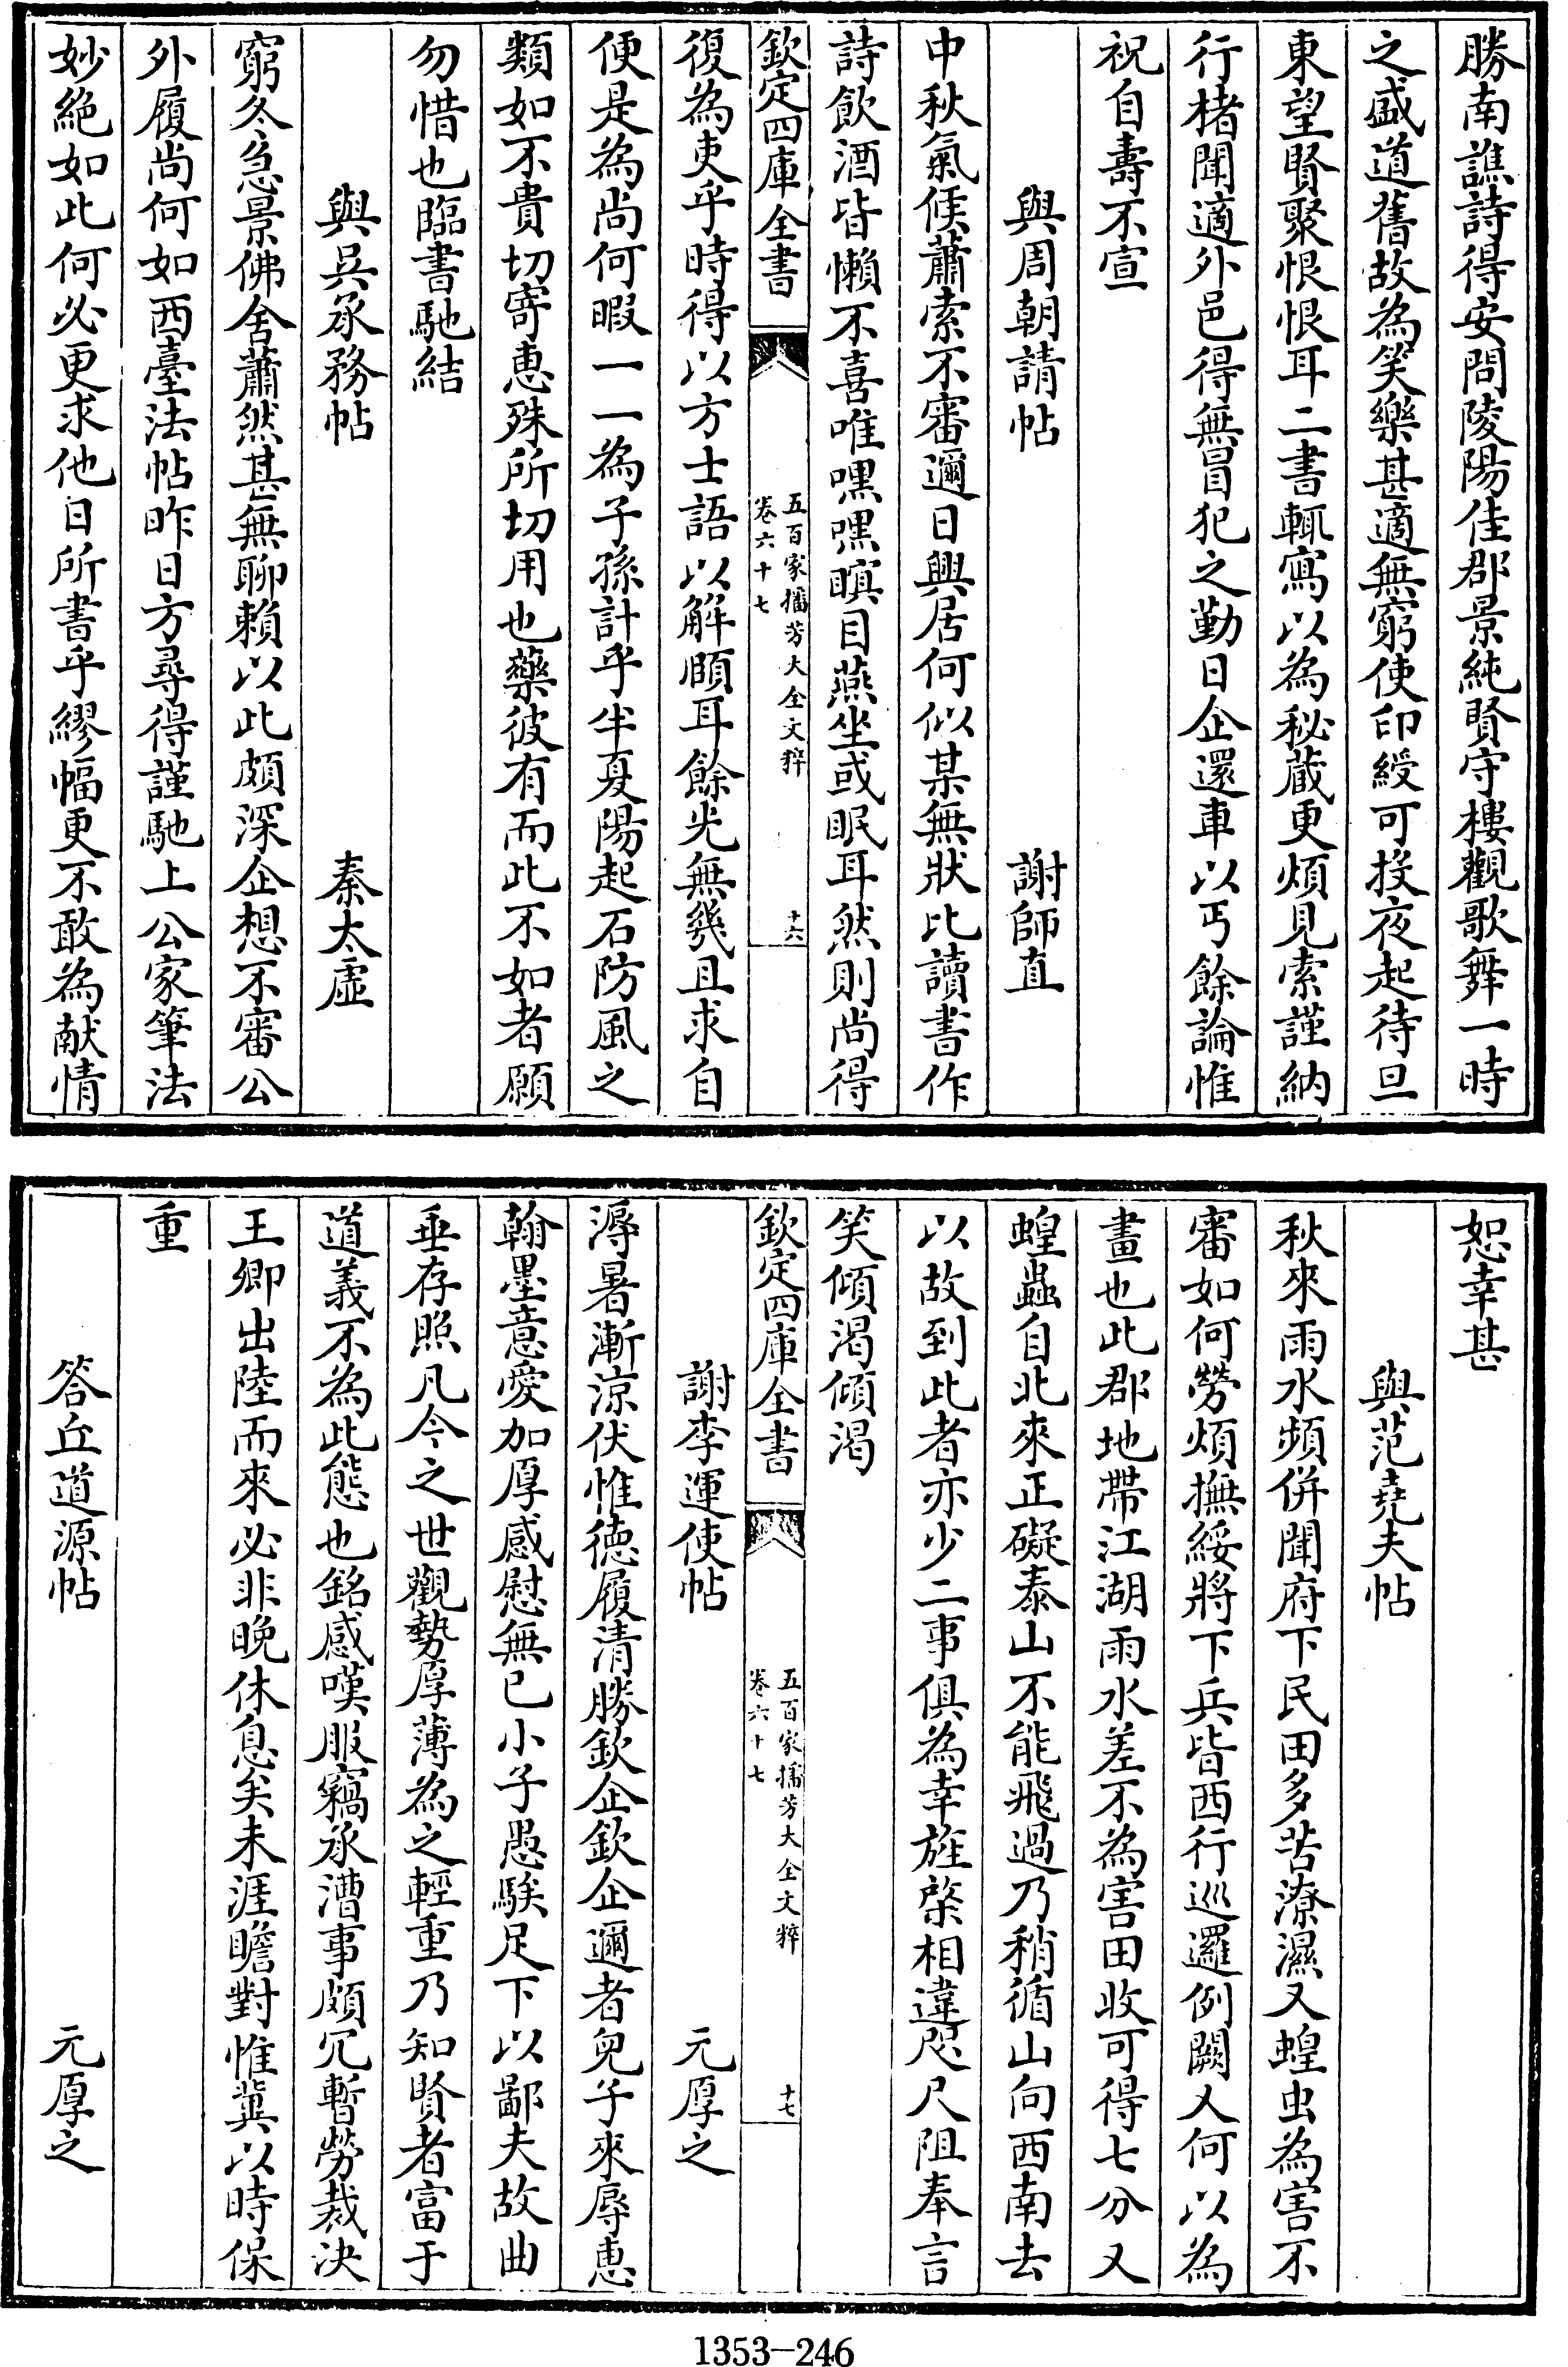 勝南譙詩得安問陵陽佳郡景純賢守樓觀歌舞一時
之盛道舊故為笑樂甚適無窮使印綬可投夜起待旦
東望賢聚恨恨耳二書輒寫以為秘藏更煩見索謹納
行楮聞適外邑得無冒犯之勤日企還車以丐餘論惟
祝自壽不宣
與周朝請帖 謝師直
中秋氣候蕭索不審邇日興居何似某無狀比讀書作
詩飲酒皆懶不喜唯嘿嘿瞑目燕坐或眠耳然則尚得
欽定四庫全書
五百家播芳大全文粹
卷六十七
十六
復為吏乎時得以方士語以解頤耳餘光無幾且求自
便是為尚何暇一一為子孫計乎半夏陽起石防風之
類如不貴切寄惠殊所切用也藥彼有而此不如者願
勿惜也臨書馳結
與吳承務帖 秦太虛
窮冬急景佛舍蕭然甚無聊賴以此頗深企想不審公
外履尚何如西臺法帖昨日方尋得謹馳上公家筆法
妙絕如此何必更求他日所書乎繆幅更不敢為献情
恕幸甚
與范堯夫帖
秋來雨水頻併聞府下民田多苦潦濕又蝗虫為害不
審如何勞煩撫綏將下兵皆西行巡邏例闕人何以為
畫也此郡地帶江湖雨水差不為害田收可得七分又
蝗蟲自北來正礙泰山不能飛過乃稍循山向西南去
以故到此者亦少二事俱為幸旌棨相違咫尺阻奉言
笑傾渴傾渴
欽定四庫全書
五百家播芳大全文粹
卷六十七
十七
謝李運使帖 元厚之
溽暑漸涼伏惟德履清勝欽企欽企邇者兒子來辱惠
翰墨意愛加厚感慰無已小子愚騃足下以鄙夫故曲
垂存照凡今之世觀勢厚薄為之輕重乃知賢者富于
道義不為此態也銘感嘆服竊承漕事頗冗暫勞裁決
王卿出陸而來必非晚休息矣未涯瞻對惟冀以時保
重
答丘道源帖 元厚之
1353-246